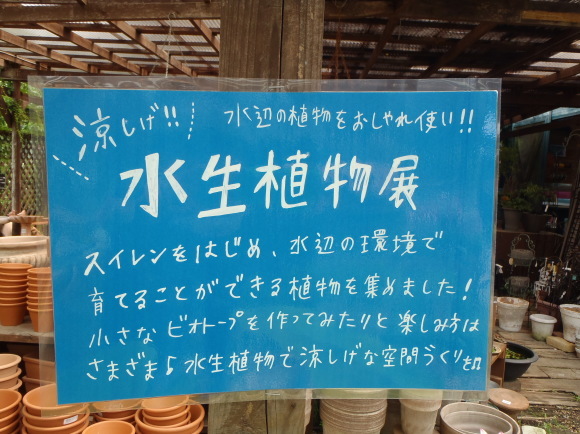 涼しげ!! 水辺の植物をおしゃれ使い!!
水生植物展
スイレンをはじめ、水辺の環境で
育てることができる植物を集めました!
小さなビオトープを作ってみたりと楽しみ方は
さまざま♪水生植物で涼しげな空間づくりを♫